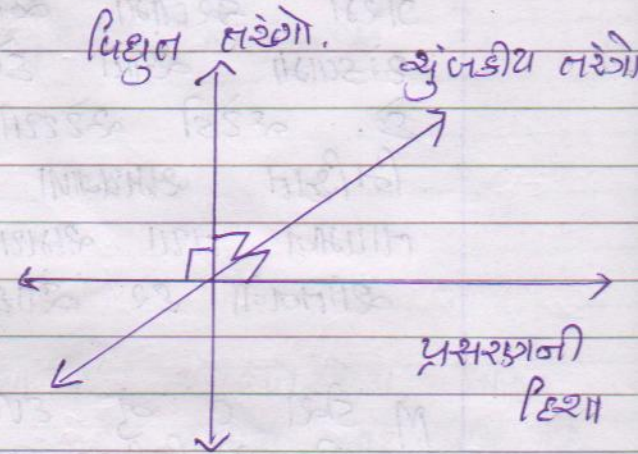 વિધુત તરંગો.
ચુંબકીય તરંગો
પ્રસરણની
દિશા